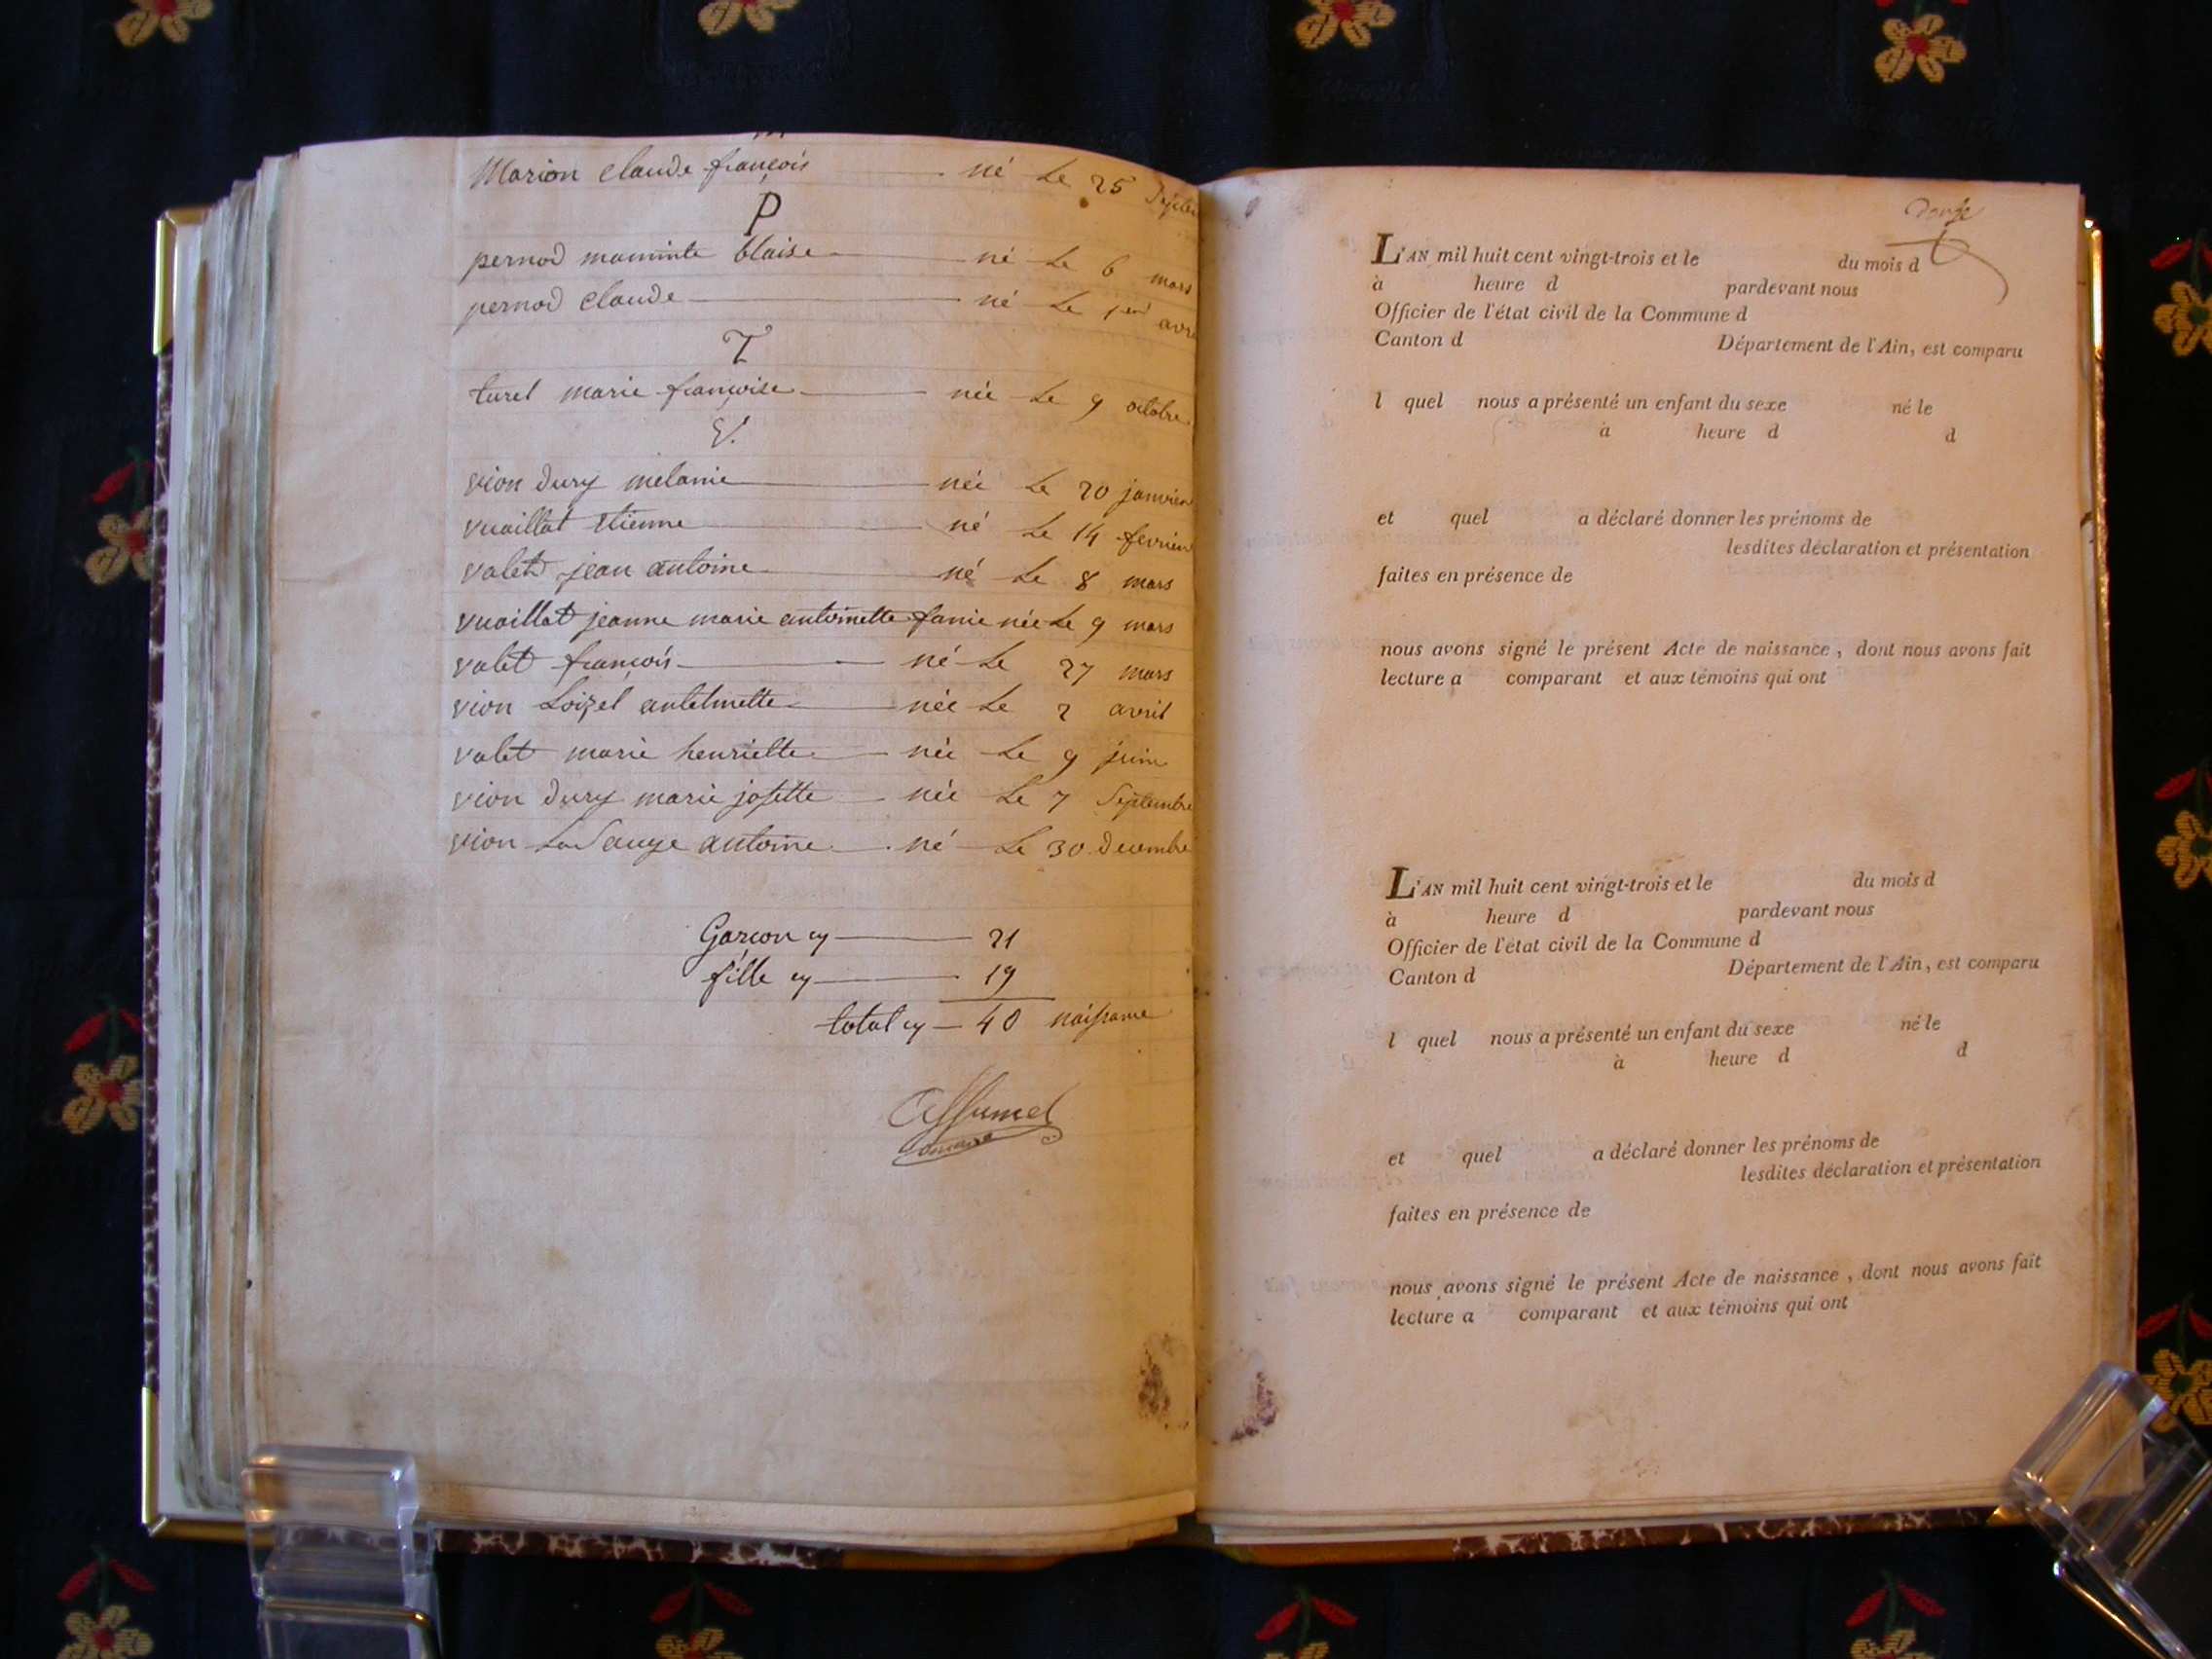 Marion claude françois né Le 25
P
pernod maminte blaise né Le 6 mars
pernod claude né Le 1er avr
T
turel marie françoise née Le 9 octobre
V.
vion dury melanie née Le 20 janvier
vuaillat etienne né Le 14 fevrier
valet jean antoine né Le 8 mars
vuaillat jeanne marie antoinette fanie née Le 9 mars
valet françois né Le 27 mars
vion Loizel antelmette née Le 2 avril
valet marie henriette née Le 9 juin
vion dury marie josette née Le 7 Septembre
vion La Sauge antoine né Le 30 decembre
Garcon cy 21
fille cy 19
total cy 40 naissance
L'AN mil huit cent vingt-trois et le du mois d
à heure d pardevant nous
Officier de l'état civil de la Commune d
Canton d Département de l'Ain, est comparu
l quel nous a présenté un enfant du sexe né le
à heure d d
et quel a déclaré donner les prénoms de
lesdites déclaration et présentation
faites en présence de
nous avons signé le présent Acte de naissance, dont nous avons fait
lecture a comparant et aux témoins qui ont
L'AN mil huit cent vingt-trois et le du mois d
à heure d pardevant nous
Officier de l'état civil de la Commune d
Canton d Département de l'Ain, est comparu
l quel nous a présenté un enfant du sexe né le
à heure d d
et quel a déclaré donner les prénoms de
lesdites déclaration et présentation
faites en présence de
nous avons signé le présent Acte de naissance, dont nous avons fait
lecture a comparant et aux témoins qui ont